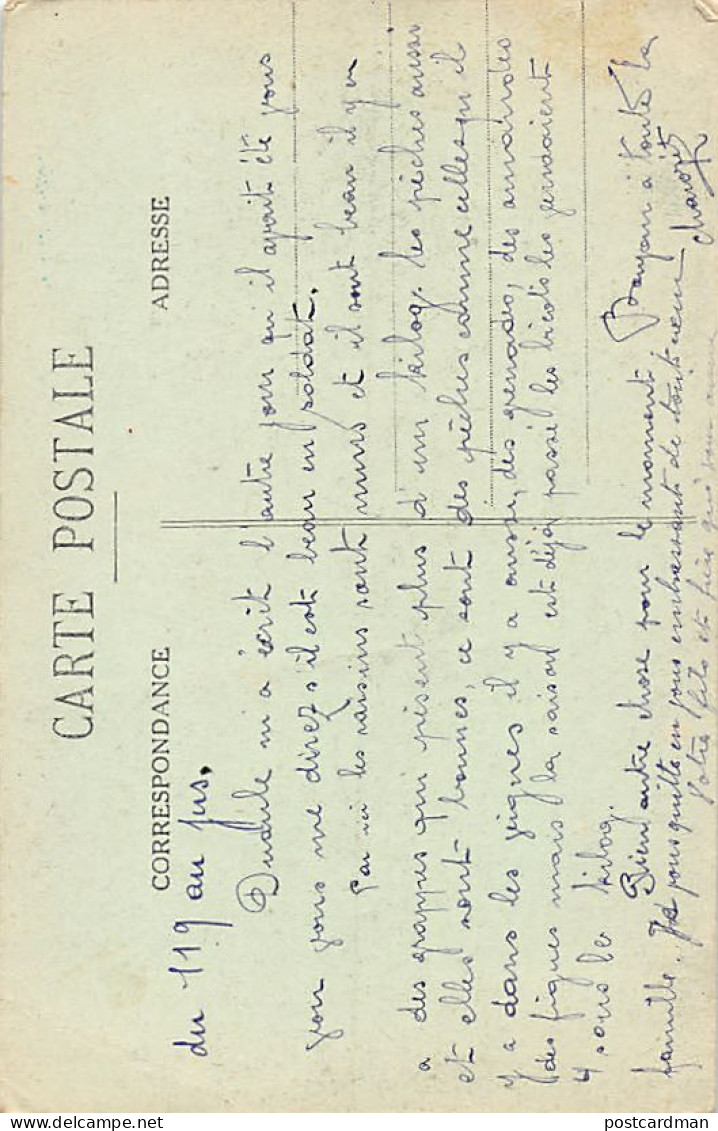 CARTE POSTALE
CORRESPONDANCE
ADRESSE
du 119 au jus.
m'a écrit l'autre jour qu'il avait été vous
voir vous me direz s'il est beau en soldat.
Par ici les raisins sont murs et il sont beau il y en
a des grappes qui pèsent plus d'un kilog. les pêches aussi
et elles sont bonnes, ce sont des pêches comme celles qu'il
y a dans les vignes il y a aussi, des grenades, des amandes
des figues mais la saison est déjà passé les bicots les vendaient
4 sous le kilog.
Rien autre chose pour le moment Bonjour à toute la
famille. Je vous quitte en vous embrassant de tout cœur
Votre fils et frère qui vous aime
postcardman